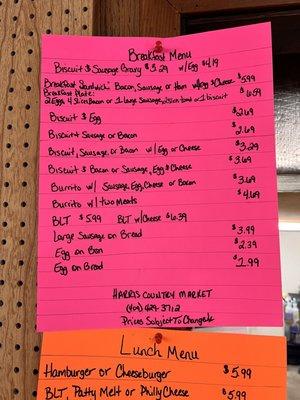 Breakfast Menu
Biscuit & Sausage Gravy $3.29 w/Egg $4.19
Breakfast Sandwich: Bacon, Sausage, or Ham w/egg & Cheese $5.99
Breakfast Plate: $6.59
2 Eggs, 4 Slices Bacon or 1 large Sausage, 1 biscuit
Biscuit & Egg $2.69
Biscuit & Sausage or Bacon $2.69
Biscuit, Sausage, or Bacon w/ Egg or Cheese $3.29
Biscuit & Bacon or Sausage, Egg & Cheese $3.69
Burrito w/ Sausage, Egg, Cheese or Bacon $3.69
Burrito w/ two Meats $4.69
BLT $5.99 BLT w/Cheese $6.39
Large Sausage on Bread $3.99
Egg on Bun $2.39
Egg on Bread $1.99
Harris Country Market
Prices Subject To Change
Lunch Menu
Hamburger or Cheeseburger $5.99
BLT, Patty Melt or Philly Cheese $5.99